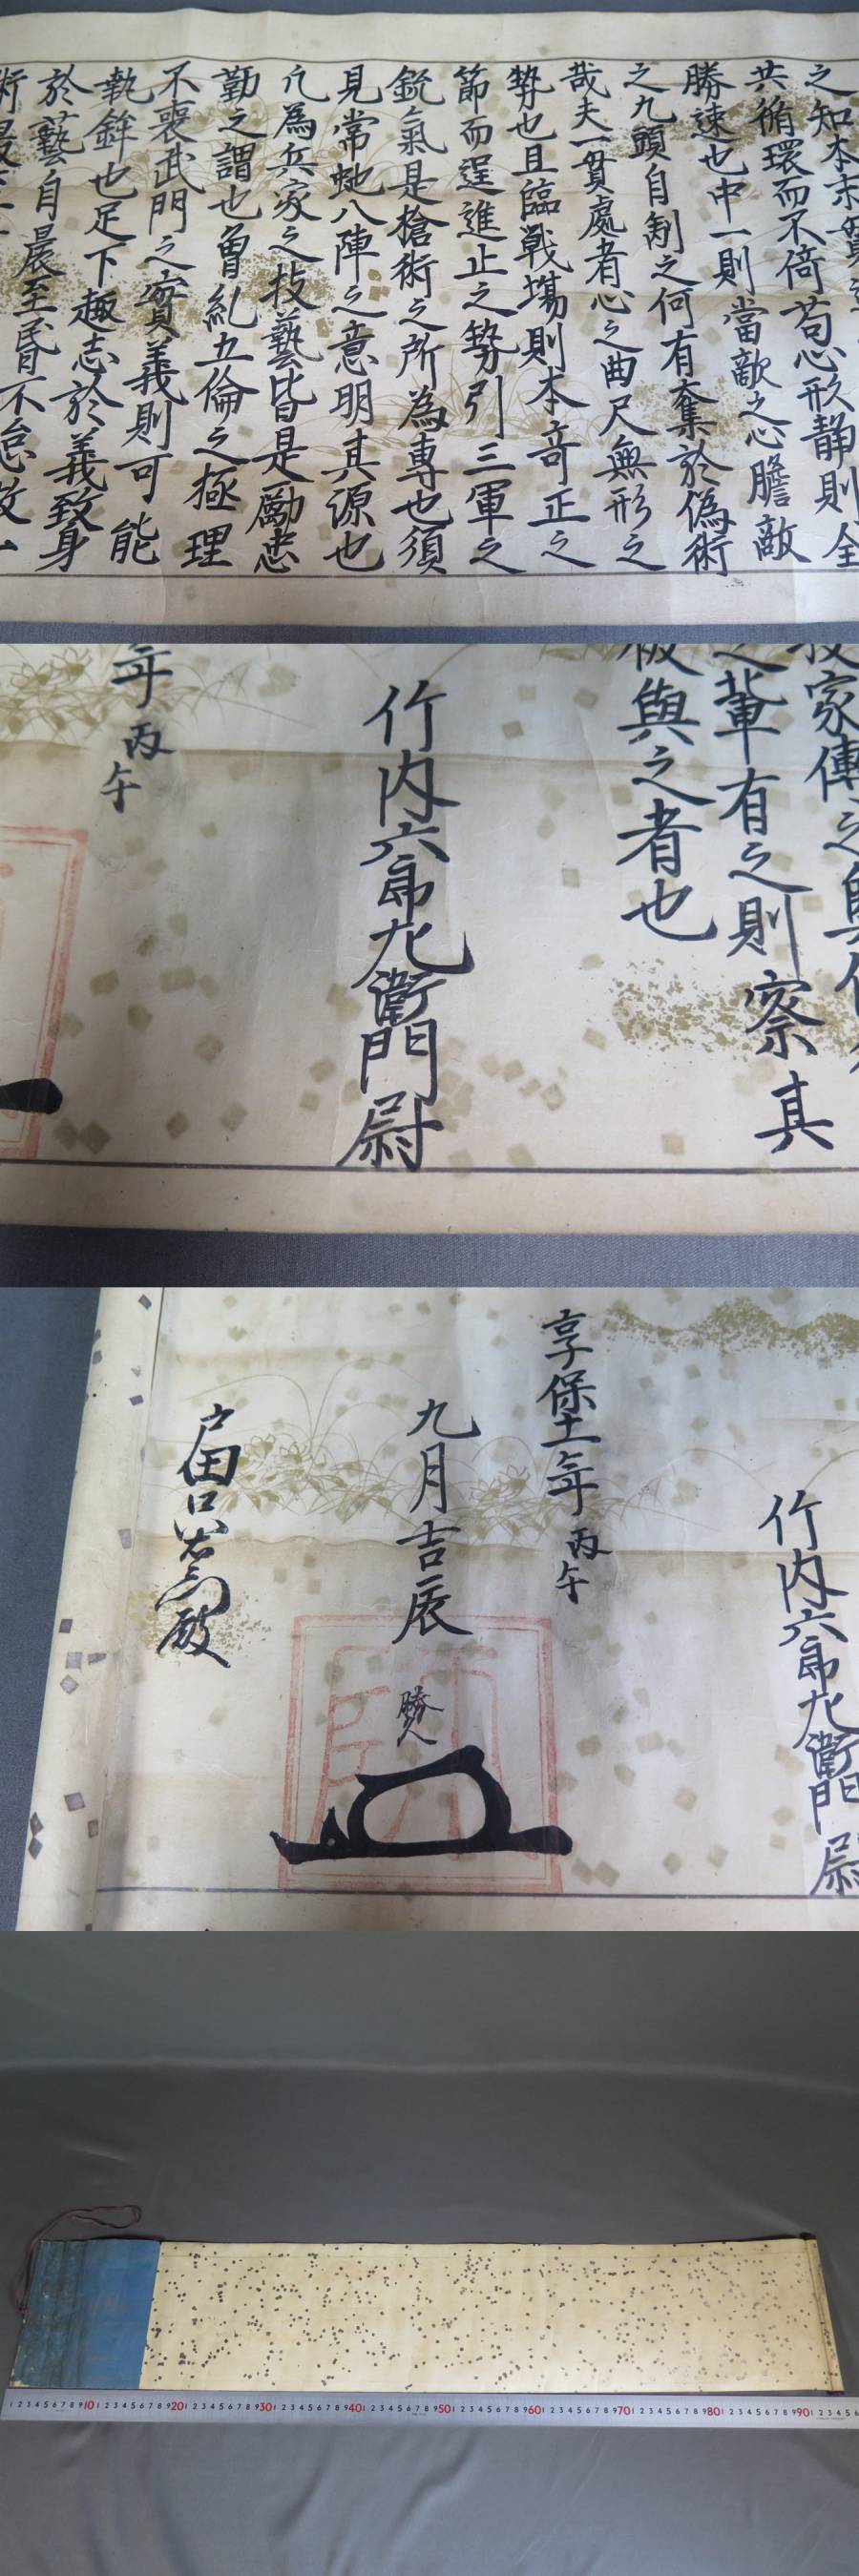 之知本末
共循環而不倚苟心形静則全
勝速也中一則當敵之心膽敵
之九頭自制之何有奪於偽術
哉夫一貫處者心之曲尺無形之
勢也且臨戦場則本竒正之
節而逞進止之勢引三軍之
銃氣是槍術之所為專也須
見常虵八陣之意明其源也
凢為兵家之技藝皆是勵忠
勤之謂也曽乱五倫之極理
不喪武門之實義則可能
執鉾也足下趣志於義致身
於藝自晨至昏不怠
術
家傳之
之輩有之則察其
與之者也
竹内六郎左衛門尉
年丙午
竹内六郎左衛門尉
享保十一年丙午
九月吉辰
勝
戸田口
殿
1 2 3 4 5 6 7 8 9 10 1 2 3 4 5 6 7 8 9 20 1 2 3 4 5 6 7 8 9 30 1 2 3 4 5 6 7 8 9 40 1 2 3 4 5 6 7 8 9 50 1 2 3 4 5 6 7 8 9 60 1 2 3 4 5 6 7 8 9 70 1 2 3 4 5 6 7 8 9 80 1 2 3 4 5 6 7 8 9 90 1 2 3 4 5 6